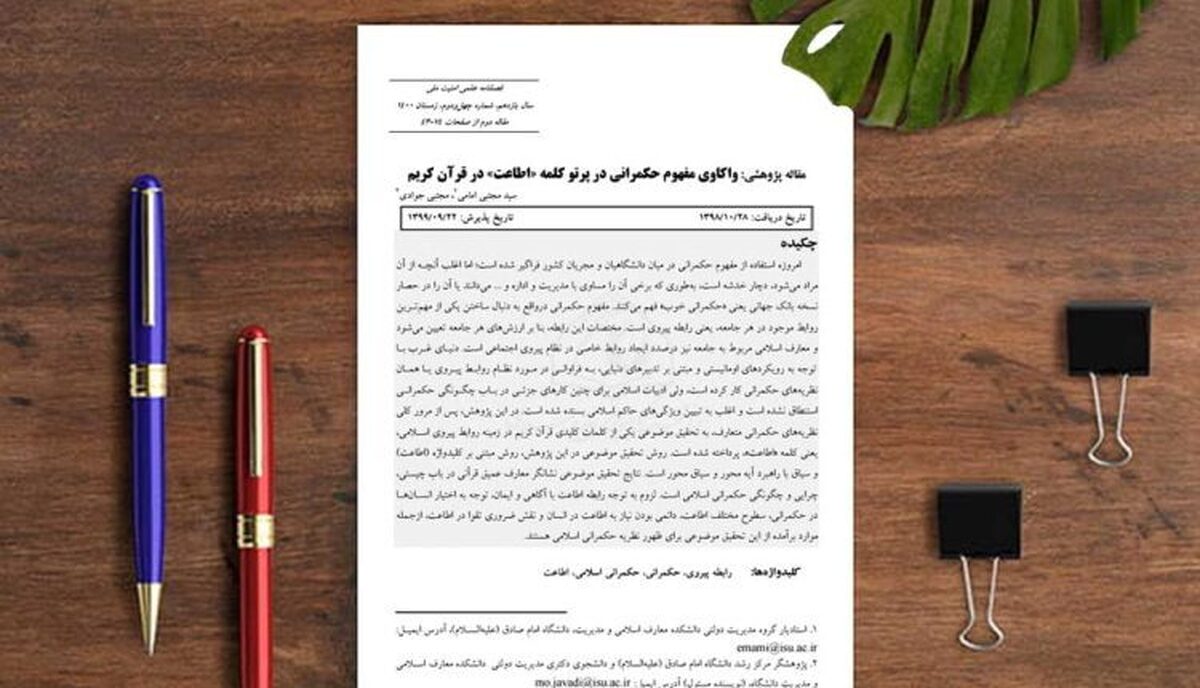 فصلنامه علمی امنیت ملی
سال یازدهم، شماره چهل‌ودوم، زمستان ۱۴۰۰
مقاله دوم از صفحات
مقاله پژوهشی: واکاوی مفهوم حکمرانی در پرتو کلمه «اطاعت» در قرآن کریم
سید مجتبی امامی۱، مجتبی جوادی۲
تاریخ دریافت: ۱۳۹۸/۱۰/۲۸ تاریخ پذیرش: ۱۳۹۹/۰۹/۲۲
چکیده
امروزه استفاده از مفهوم حکمرانی در میان دانشگاهیان و مجریان کشور فراگیر شده است؛ اما اغلب آنچه از آن
مراد می‌شود، دچار خدشه است، به‌طوری که برخی آن را مساوی با مدیریت و اداره و ... می‌دانند یا آن را در حصار
نسخه بانک جهانی یعنی «حکمرانی خوب» فهم می‌کنند. مفهوم حکمرانی درواقع به دنبال ساختن یکی از مهم‌ترین
روابط موجود در هر جامعه، یعنی رابطه پیروی است. مختصات این رابطه، بنا بر ارزش‌های هر جامعه تعیین می‌شود
و معارف اسلامی مربوط به جامعه نیز درصدد ایجاد روابط خاصی در نظام پیروی اجتماعی است. دنیای غرب با
توجه به رویکردهای اومانیستی و مبتنی بر تدبیرهای دنیایی، به فراوانی در مورد نظام روابط پیروی یا همان
نظریه‌های حکمرانی کار کرده است، ولی ادبیات اسلامی برای چنین کارهای جزئی در باب چگونگی حکمرانی
استنطاق نشده است و اغلب به تبیین ویژگی‌های حاکم اسلامی بسنده شده است. در این پژوهش، پس از مرور کلی
نظریه‌های حکمرانی متعارف، به تحقیق موضوعی یکی از کلمات کلیدی قرآن کریم در زمینه روابط پیروی اسلامی،
یعنی کلمه «اطاعت»، پرداخته شده است. روش تحقیق موضوعی در این پژوهش، روش مبتنی بر کلیدواژه (اطاعت)
و سیاق با راهبرد آیه محور و سیاق محور است. نتایج تحقیق موضوعی نشانگر معارف عمیق قرآنی در باب چیستی،
چرایی و چگونگی حکمرانی اسلامی است. لزوم به توجه رابطه اطاعت با آگاهی و ایمان، توجه به اختیار انسان‌ها
در حکمرانی، سطوح مختلف اطاعت، دائمی بودن نیاز به اطاعت در انسان و نقش ضروری تقوا در اطاعت، ازجمله
موارد برآمده از این تحقیق موضوعی برای ظهور نظریه حکمرانی اسلامی هستند.
کلیدواژه‌ها: رابطه پیروی، حکمرانی، حکمرانی اسلامی، اطاعت
۱. استادیار گروه مدیریت دولتی دانشکده معارف اسلامی و مدیریت، دانشگاه امام صادق (علیه‌السلام)، آدرس ایمیل:
emami@isu.ac.ir
۲. پژوهشگر مرکز رشد دانشگاه امام صادق (علیه‌السلام) و دانشجوی دکتری مدیریت دولتی دانشکده معارف اسلامی
و مدیریت دانشگاه، (نویسنده مسئول) آدرس ایمیل: mo.javadi@isu.ac.ir